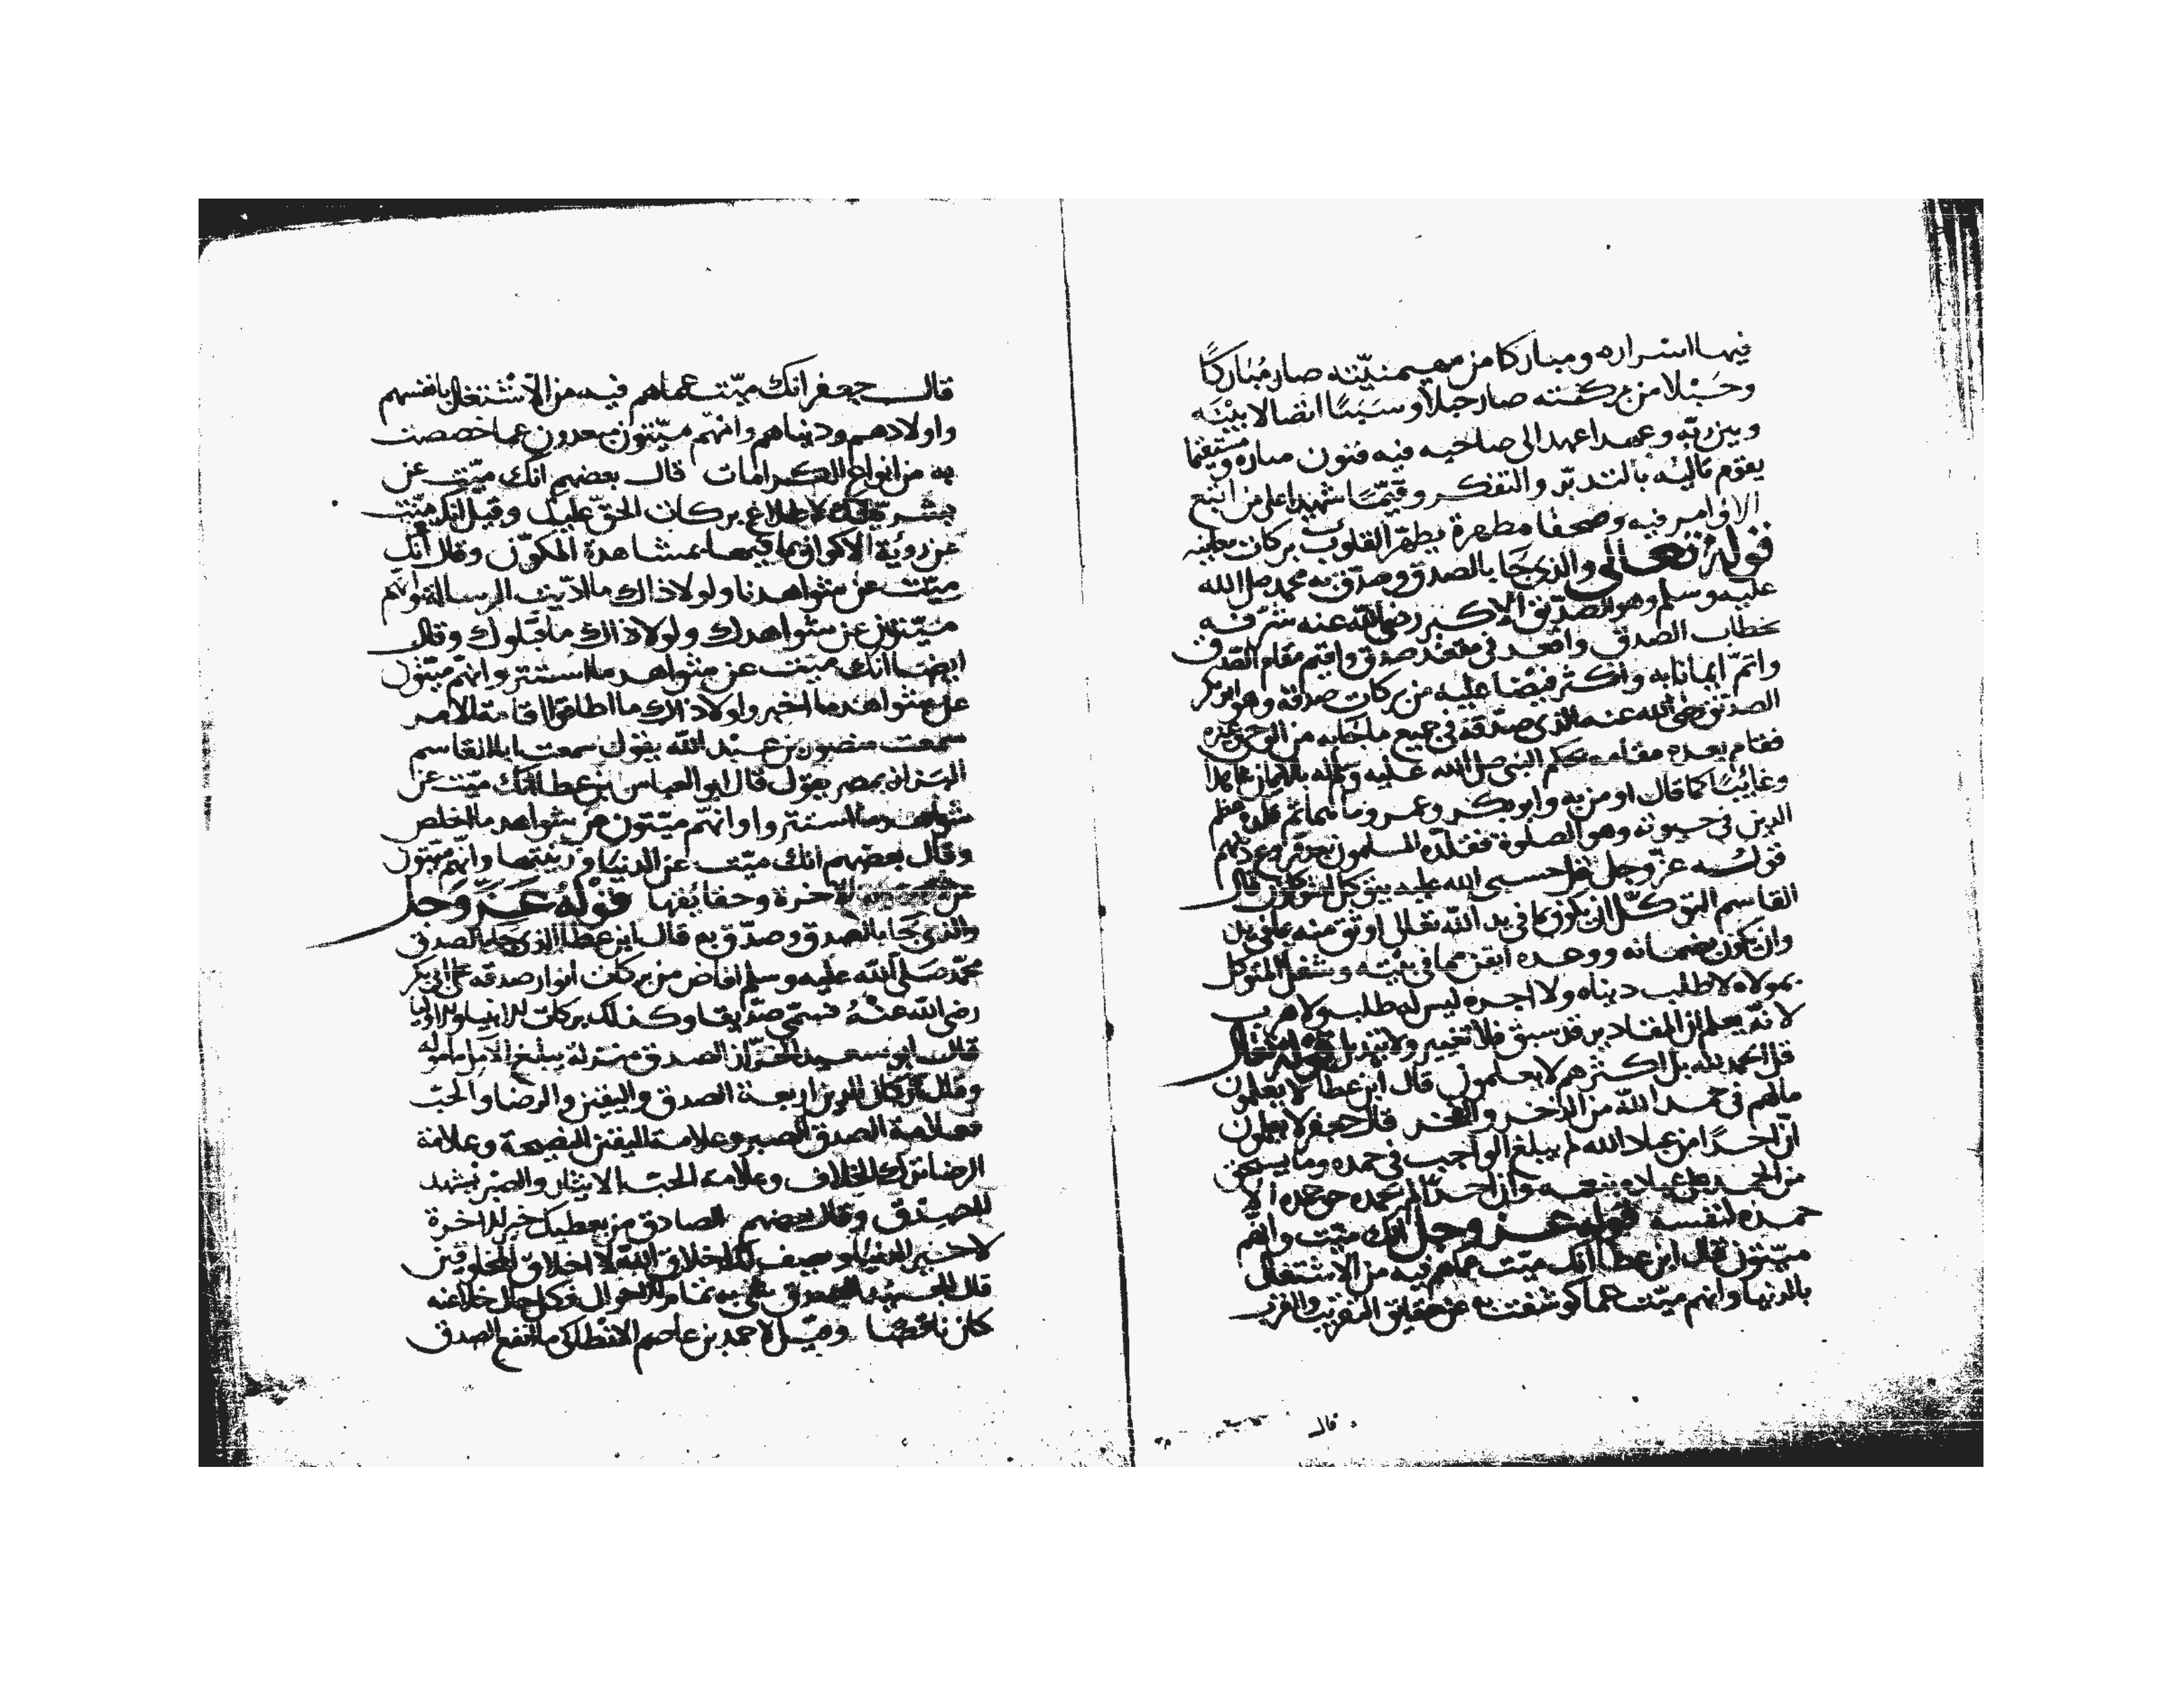 فيها اسراره ومباركا من مهيمنيته صار مباركًا
وحَبْلا من بركته صار حبلاً وسَبَبًا اتصالا بيْنَه
وبين ربّه وعهدا عهد الى صاحبه فيه فنون مباره
يقوم تاليه بالتدبّر والتفكر وقيّمًا شهيدا على من اتبع
الاوامر فيه وصحفا مطهرة يطهّر القلوب بركات
قوله تعالى والذي جَا بالصدق وصدّق به محمد صلى الله
عليه وسلم وهو الصدّيق الاكبر رضي الله عنه شرّفه
خطاب الصدق واقعد في مقعد صدق واقيم مقام الصدق
واتمّ ايمانا به واكثر فيضا عليه من بركات صدقه وهو ابو بكر
الصديق رضي الله عنه الذي صدّقه في جميع ما جَا به من الوحي
فقام بعده مقامه بحكم النبي صلى الله عليه وسلم له بالايمان
وغائبًا كما قال اومن به وابو بكر وعمر وما هما ثم
الدين في حيوته وهو الصلوة فقلّده المسلمون
قوله عزّ وجل قل حسبي الله عليه يتوكل المتوكلون قال
القاسم التوكّل ان يكون بما في يد الله تعالى اوثق منه بما في يده
وان يكون بضمانه ووحده ايقن مما في بيْته وشغل المتوكل
بمولاه لا طلب دنياه ولا اجره ليس له طلب ولا هرب
لانّه يعلم ان المقادير قد سبق فلا تغيير ولا تبديل قوله تعالى
قل الحمد لله بل اكثرهم لا يعلمون قال ابن عطا لا يعلمون
مالهم في حمد الله من الذخر والفخر قال جعفر لا يعلمون
انّ احدًا من عباد الله لم يبلغ الواجب في حمده وما يستحق
من الحمد على عباده بنعمه وان احدًا لم يحمده حق حمده الا
حمده لنفسه قوله عز وجل انك ميّت وانّهم
ميّتون قال ابن عطا انك ميّت عما هم فيه من الاشتغال
بالدنيا وانهم ميّت عما كوشفت به عن حقايق التقريب والقرب
قال
قال جعفر انك ميّت عما هم فيه من الاشتغال بانفسهم
واولادهم ودنياهم وانهّم ميّتون مبعدون عما خصصت
به من انواع الكرامات قال بعضهم انك ميّت عن
بشريّتك لابلاغ بركات الحقّ عليك وقيل انك ميّت
عن رؤية الاكوان بما فيها بمشاهدة المكوّن وقال انك
ميّت عن شواهدنا ولولا ذاك ما ادّيت الرسالة وانهم
ميّتون عن شواهدك ولولا ذاك ما قبلوك وقال
ايضا انك ميّت عن شواهد ما استتر وانهّم ميّتون
عن شواهد ما اخبر ولولا ذاك ما اطاقوا اقامة الامر
سمعت منصور بن عبد الله يقول سمعت ابا القاسم
البزاز بمصر يقول قال ابو العباس بن عطا انك ميّت عن
شواهد ما استتروا وانهّم ميّتون عن شواهد ما اخلص
وقال بعضهم انك ميّت عن الدنيا وزينتها وانهّم ميّتون
عن الاخرة وحقايقها قوله عَزّ وَجل
والذي جَا بالصدق وصدّق به قال ابن عطا الذي جا بالصدق
محمّد صَلى الله عليه وسلم افاض من بركات انوار صدقه على ابي بكر
رضي الله عنْهُ فسمّي صدّيقا وكذلك بركات الانبيا والاوليا
قال ابو سعيد الخرّاز الصدق منزلة يبلغ
وقال اركان الدين اربعة الصدق واليقين والرضا والحبّ
فعلامة الصدق الصبر وعلامة اليقين النصيحة وعلامة
الرضا ترك الخلاف وعلامة الحبّ الايثار والصبر يشهد
للصدق وقال بعضهم الصادق من يعطيك خير الاخرة
لا خير الدنيا ويصف لك اخلاق الله لا اخلاق المخلوقين
قال الجنيد الصدق شي به تمام الاحوال وكل حال خلا عنه
كان ناقصًا وقيل لاحمد بن عاصم الانطاكي ما انفع الصدق